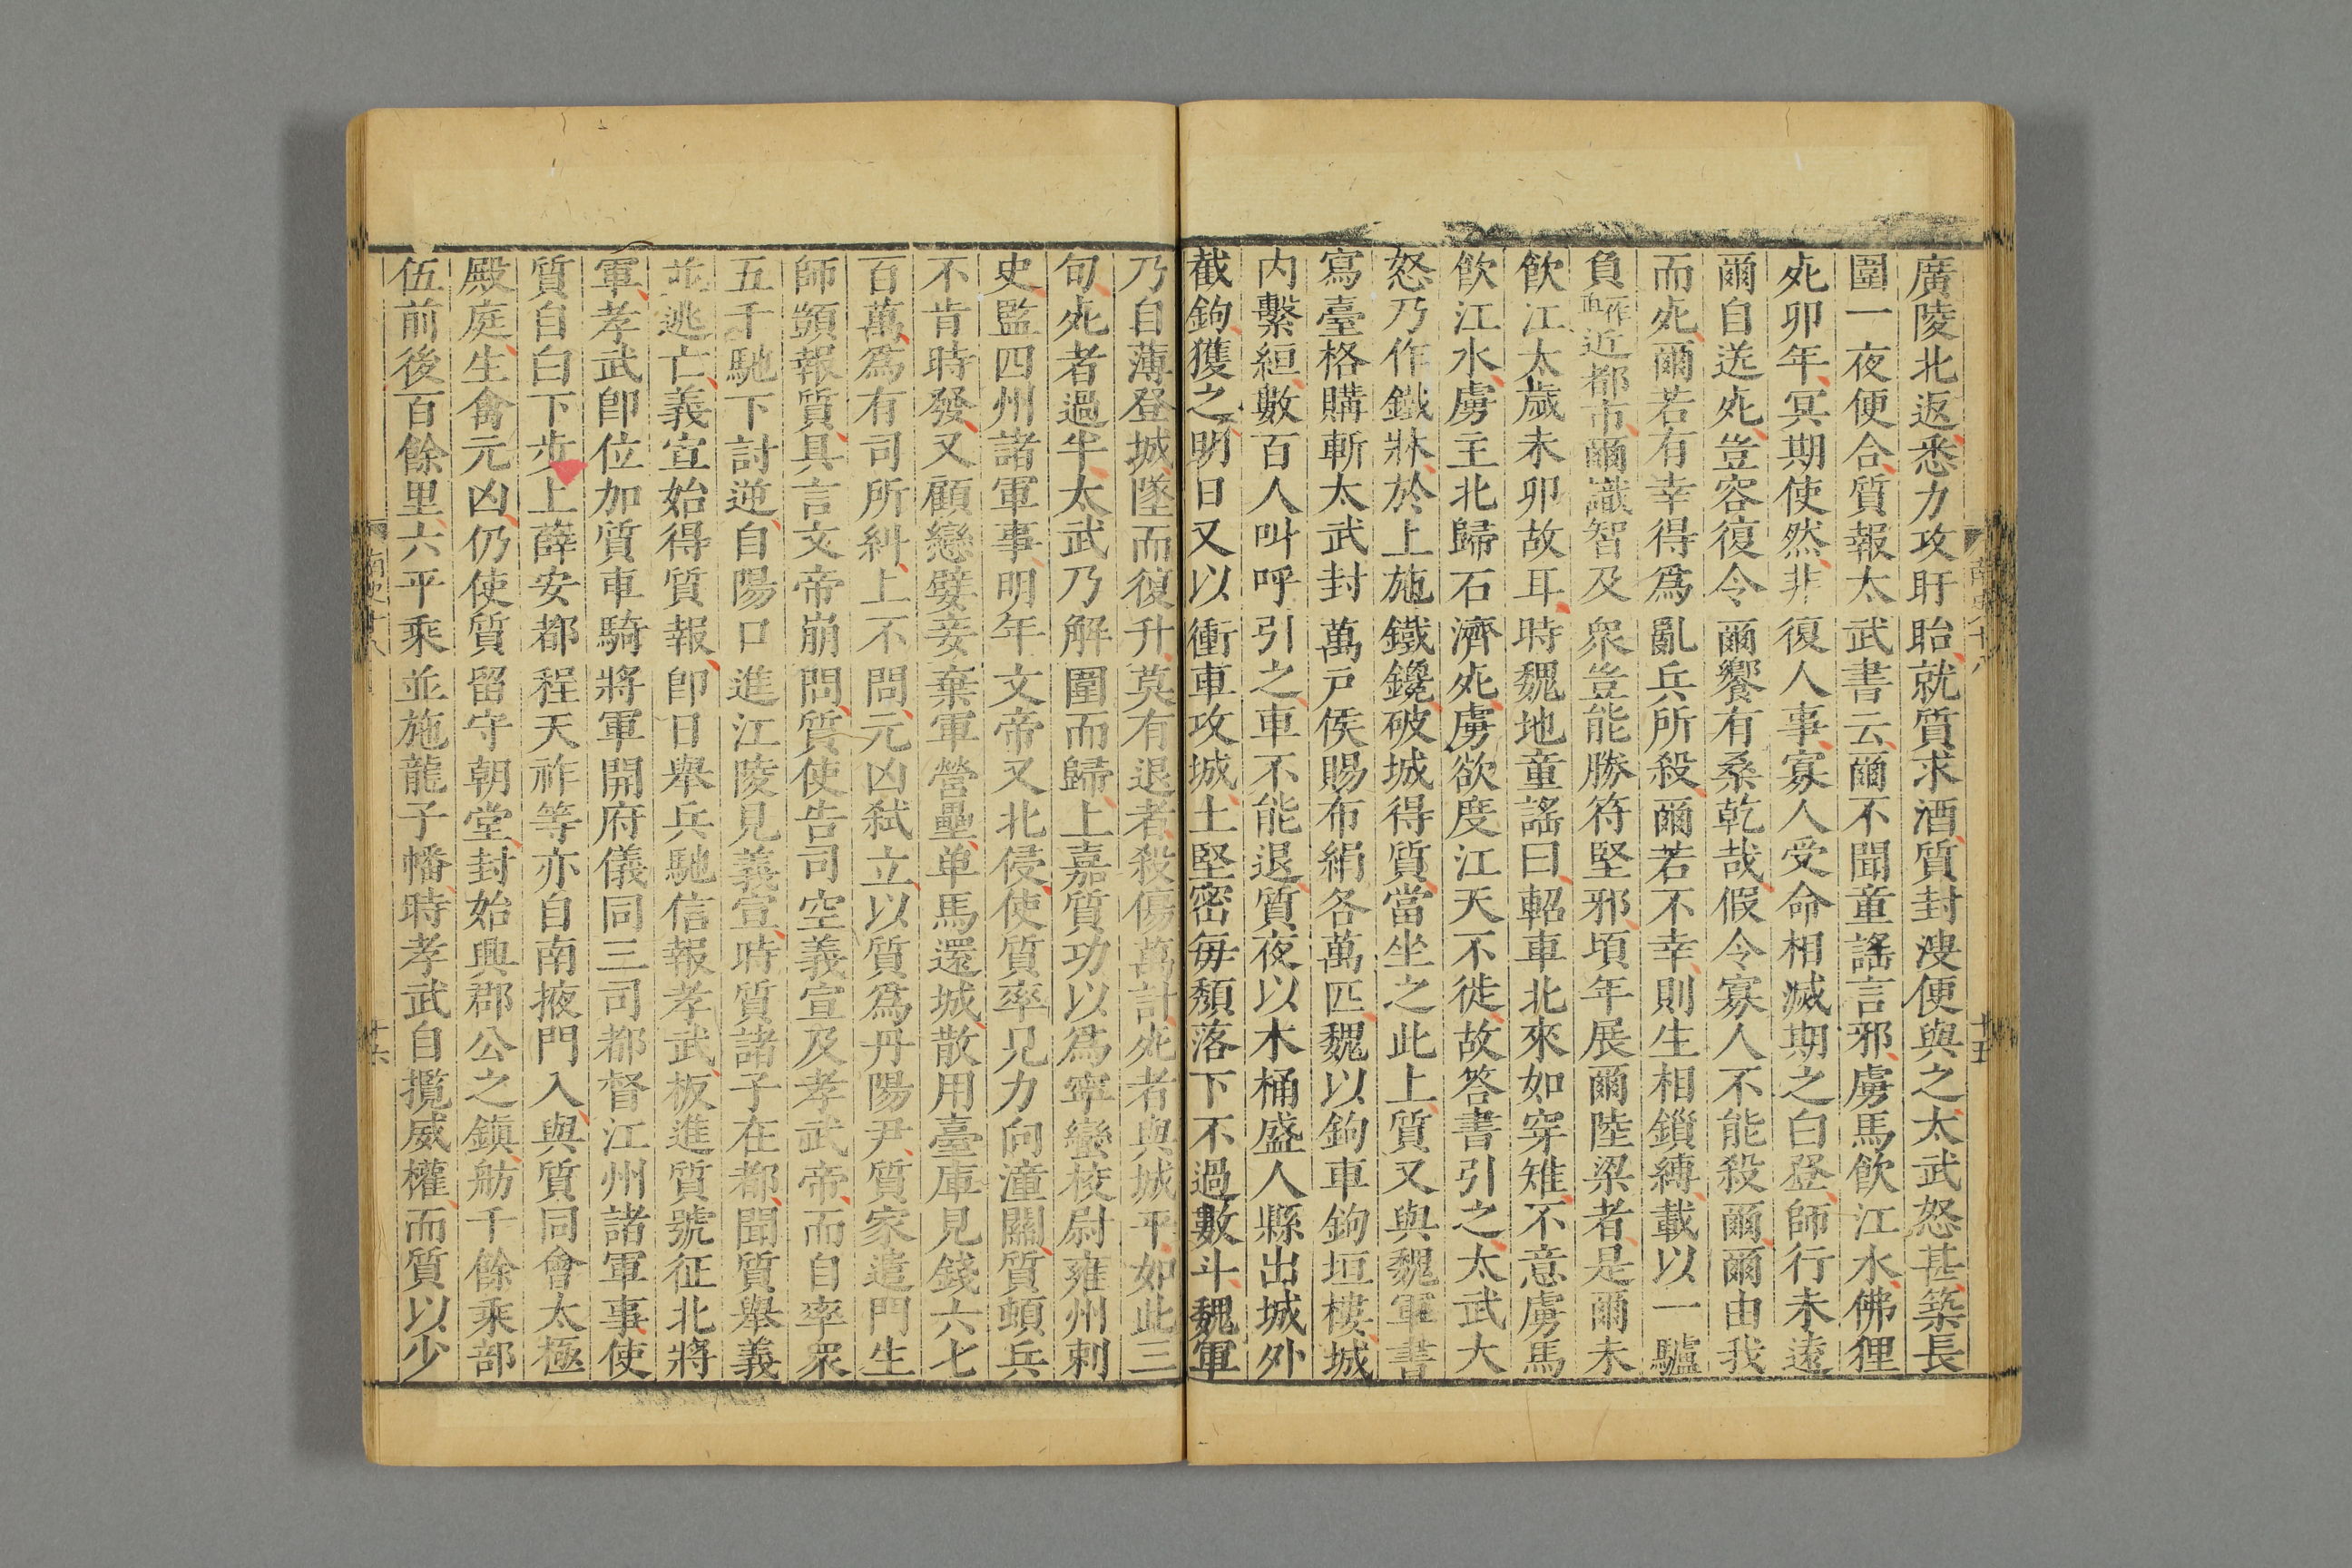 廣陵北返悉力攻盱眙就質求酒質封溲便與之太武怒甚築長
圍一夜便合質報太武書云爾不聞童謠言邪虜馬飲江水佛狸
死卯年冥期使然非復人事寡人受命相滅期之白登師行未遠
爾自送死豈容復令爾饗有桑乾哉假令寡人不能殺爾爾由我
而死爾若有幸得爲亂兵所殺爾若不幸則生相鎖縛載以一驢
負近都市爾識智及衆豈能勝符堅邪頃年展爾陸梁者是爾未
飲江太歲未卯故耳時魏地童謠曰軺車北來如穿雉不意虜馬
飲江水虜主北歸石濟死虜欲度江天不徙故答書引之太武大
怒乃作鐵牀於上施鐵鑱破城得質當坐之此上質又與魏軍書
寫臺格購斬太武封萬戸侯賜布絹各萬匹魏以鉤車鉤垣樓城
内繫絙數百人叫呼引之車不能退質夜以木桶盛人縣出城外
截鉤獲之明日又以衝車攻城土堅密每頹落下不過數斗魏軍
乃自薄登城墜而復升莫有退者殺傷萬計死者與城平如此三
旬死者過半太武乃解圍而歸上嘉質功以爲寧蠻校尉雍州刺
史監四州諸軍事明年文帝又北侵使質率見力向潼關質頓兵
不肯時發又顧戀嬖妾棄軍營壘单馬還城散用臺庫見錢六七
百萬爲有司所糾上不問元凶弑立以質爲丹陽尹質家遣門生
師顗報質具言文帝崩問質使告司空義宣及孝武帝而自率衆
五千馳下討逆自陽口進江陵見義宣時質諸子在都聞質舉義
並逃亡義宣始得質報即日舉兵馳信報孝武板進質號征北將
軍孝武即位加質車騎將軍開府儀同三司都督江州諸軍事使
質自白下步上薛安都程天祚等亦自南掖門入與質同會太極
殿庭生禽元凶仍使質留守朝堂封始興郡公之鎮舫千餘乘部
伍前後百餘里六平乘並施龍子幡時孝武自攬威權而質以少